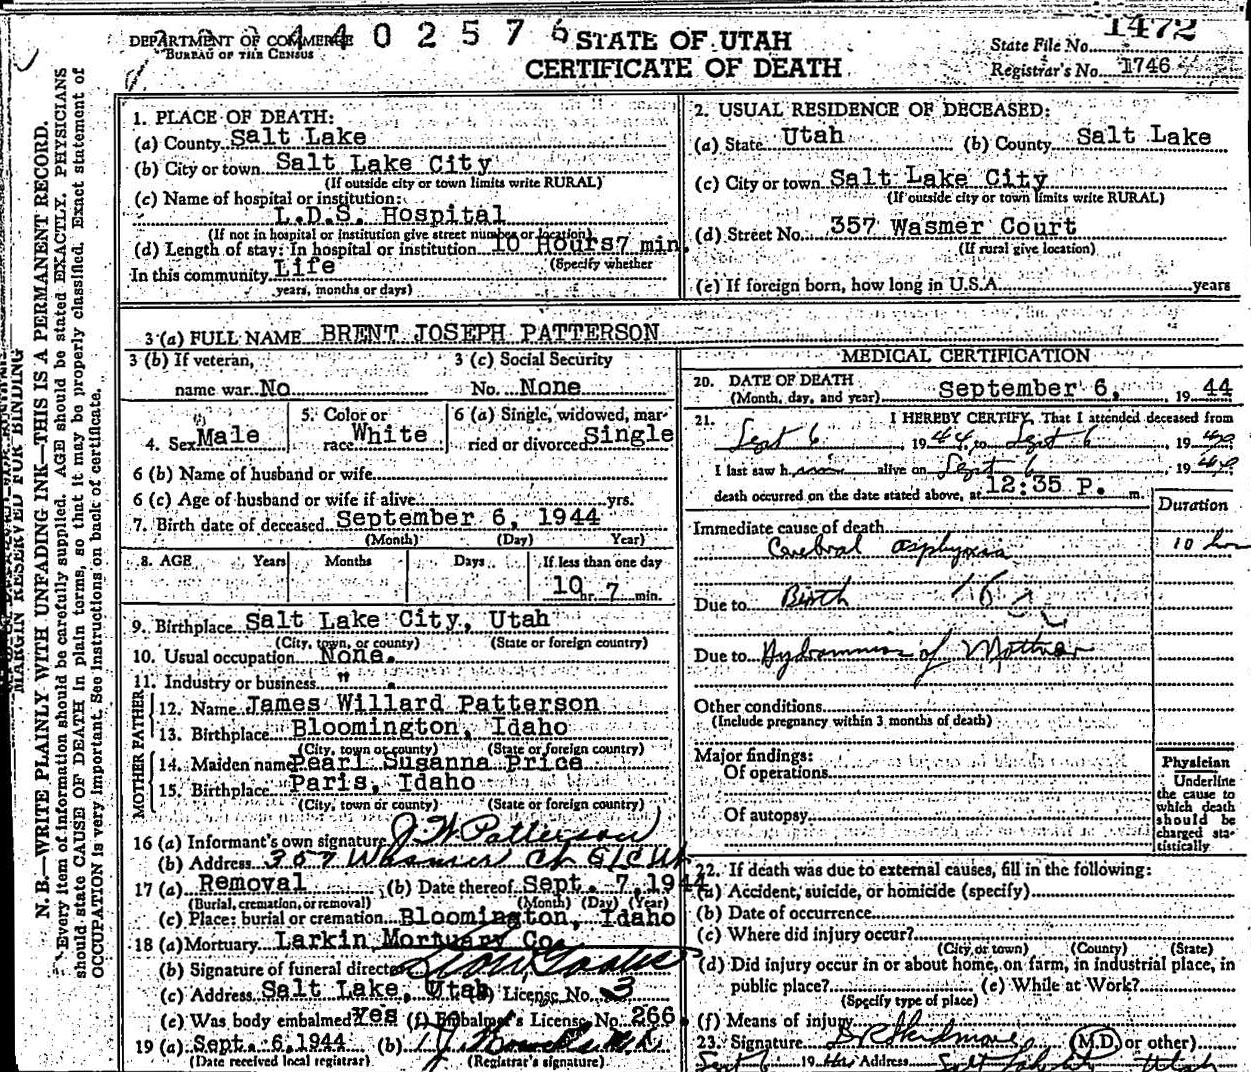 DEPARTMENT OF COMMERCE
BUREAU OF THE CENSUS
4 4 0 2 5 7 6
STATE OF UTAH
CERTIFICATE OF DEATH
State File No. 1472
Registrar's No. 1746
MARGIN RESERVED FOR BINDING
N. B.—WRITE PLAINLY WITH UNFADING INK—THIS IS A PERMANENT RECORD.
Every item of information should be carefully supplied. AGE should be stated EXACTLY. PHYSICIANS
should state CAUSE OF DEATH in plain terms, so that it may be properly classified. Exact statement of
OCCUPATION is very important. See Instructions on back of certificate.
1. PLACE OF DEATH:
(a) County Salt Lake
(b) City or town Salt Lake City
(If outside city or town limits write RURAL)
(c) Name of hospital or institution:
L.D.S. Hospital
(If not in hospital or institution give street number or location)
(d) Length of stay: In hospital or institution 10 Hours 7 min.
(Specify whether
In this community Life
years, months or days)
2. USUAL RESIDENCE OF DECEASED:
(a) State Utah (b) County Salt Lake
(c) City or town Salt Lake City
(If outside city or town limits write RURAL)
(d) Street No. 357 Wasmer Court
(If rural give location)
(e) If foreign born, how long in U.S.A. years
3 (a) FULL NAME BRENT JOSEPH PATTERSON
3 (b) If veteran, name war No
3 (c) Social Security No. None
4. Sex Male
5. Color or race White
6 (a) Single, widowed, married or divorced Single
6 (b) Name of husband or wife
6 (c) Age of husband or wife if alive yrs.
7. Birth date of deceased September 6, 1944
(Month) (Day) Year)
8. AGE Years Months Days If less than one day
10 hr. 7 min.
9. Birthplace Salt Lake City, Utah
(City, town, or county) (State or foreign country)
10. Usual occupation None.
11. Industry or business " .
FATHER
12. Name James Willard Patterson
13. Birthplace Bloomington, Idaho
(City, town or county) (State or foreign country)
MOTHER
14. Maiden name Pearl Susanna Price
15. Birthplace Paris, Idaho
(City, town or county) (State or foreign country)
16 (a) Informant's own signature J W Patterson
(b) Address 357 Wasmer Ct SLC Ut
17 (a) Removal (b) Date thereof Sept. 7, 1944
(Burial, cremation, or removal) (Month) (Day) (Year)
(c) Place: burial or cremation Bloomington, Idaho
18 (a) Mortuary Larkin Mortuary Co.
(b) Signature of funeral director
(c) Address Salt Lake, Utah (d) License No. 3
(e) Was body embalmed yes (f) Embalmer's License No. 266.
19 (a) Sept. 6, 1944 (b)
(Date received local registrar) (Registrar's signature)
MEDICAL CERTIFICATION
20. DATE OF DEATH
(Month, day, and year) September 6, 1944
21. I HEREBY CERTIFY, That I attended deceased from
Sept 6 1944, to Sept 6, 1944
I last saw h im alive on Sept 6, 1944
death occurred on the date stated above, at 12:35 P. m.
Duration
Immediate cause of death
Cerebral asphyxia 10 hrs
Due to Birth
Due to Hydramnios of Mother
Other conditions
(Include pregnancy within 3 months of death)
Major findings:
Of operations
Of autopsy
Physician
Underline
the cause to
which death
should be
charged sta-
tistically.
22. If death was due to external causes, fill in the following:
(a) Accident, suicide, or homicide (specify)
(b) Date of occurrence
(c) Where did injury occur?
(City or town) (County) (State)
(d) Did injury occur in or about home, on farm, in industrial place, in
public place? (e) While at Work?
(Specify type of place)
(f) Means of injury
23. Signature Skidmore (M.D. or other)
Sept 6 1944 Address Salt Lake City Utah